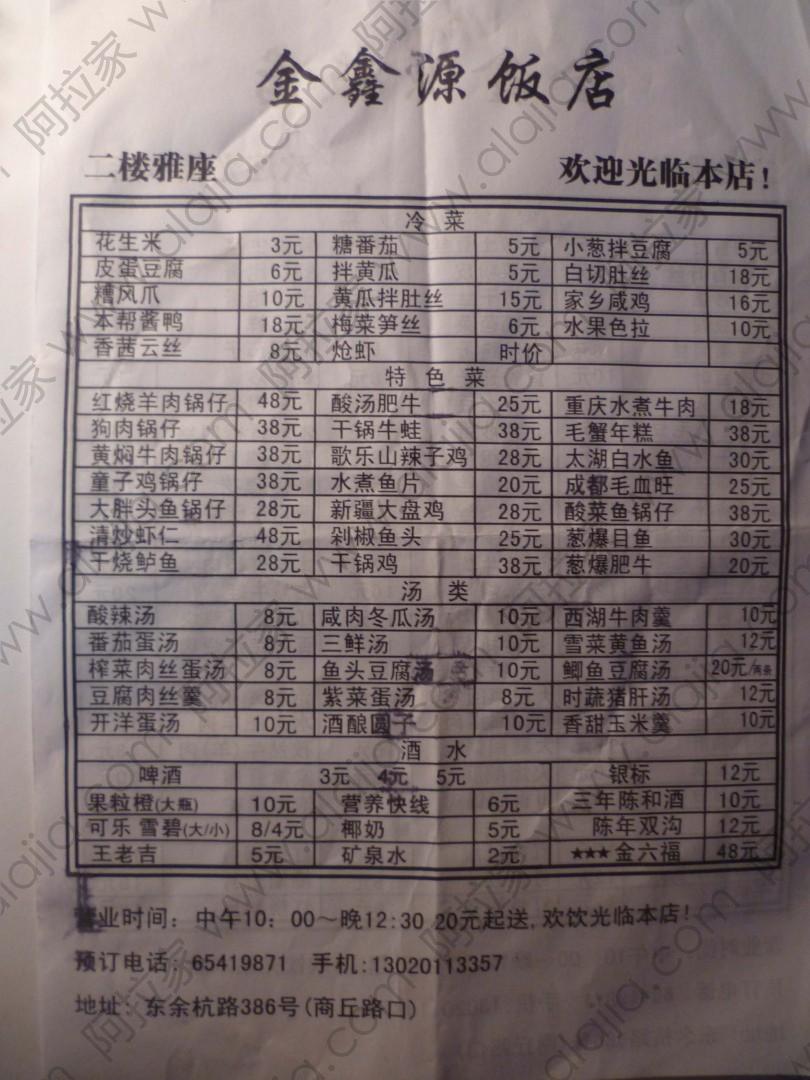 金鑫源饭店
二楼雅座 欢迎光临本店！
冷菜
花生米 3元 糖番茄 5元 小葱拌豆腐 5元
皮蛋豆腐 6元 拌黄瓜 5元 白切肚丝 18元
糟风爪 10元 黄瓜拌肚丝 15元 家乡咸鸡 16元
本帮酱鸭 18元 梅菜笋丝 6元 水果色拉 10元
香茜云丝 8元 炝虾 时价
特色菜
红烧羊肉锅仔 48元 酸汤肥牛 25元 重庆水煮牛肉 18元
狗肉锅仔 38元 干锅牛蛙 38元 毛蟹年糕 38元
黄焖牛肉锅仔 38元 歌乐山辣子鸡 28元 太湖白水鱼 30元
童子鸡锅仔 38元 水煮鱼片 20元 成都毛血旺 25元
大胖头鱼锅仔 28元 新疆大盘鸡 28元 酸菜鱼锅仔 38元
清炒虾仁 48元 剁椒鱼头 25元 葱爆目鱼 30元
干烧鲈鱼 28元 干锅鸡 38元 葱爆肥牛 20元
汤类
酸辣汤 8元 咸肉冬瓜汤 10元 西湖牛肉羹 10元
番茄蛋汤 8元 三鲜汤 10元 雪菜黄鱼汤 12元
榨菜肉丝蛋汤 8元 鱼头豆腐汤 10元 鲫鱼豆腐汤 20元/两条
豆腐肉丝羹 8元 紫菜蛋汤 8元 时蔬猪肝汤 12元
开洋蛋汤 10元 酒酿圆子 10元 香甜玉米羹 10元
酒水
啤酒 3元 4元 5元 银标 12元
果粒橙(大瓶) 10元 营养快线 6元 三年陈和酒 10元
可乐 雪碧(大/小) 8/4元 椰奶 5元 陈年双沟 12元
王老吉 5元 矿泉水 2元 ★★★金六福 48元
营业时间：中午10：00～晚12:30 20元起送,欢饮光临本店！
预订电话：65419871 手机:13020113357
地址：东余杭路386号(商丘路口)
阿拉家 www.alajia.com